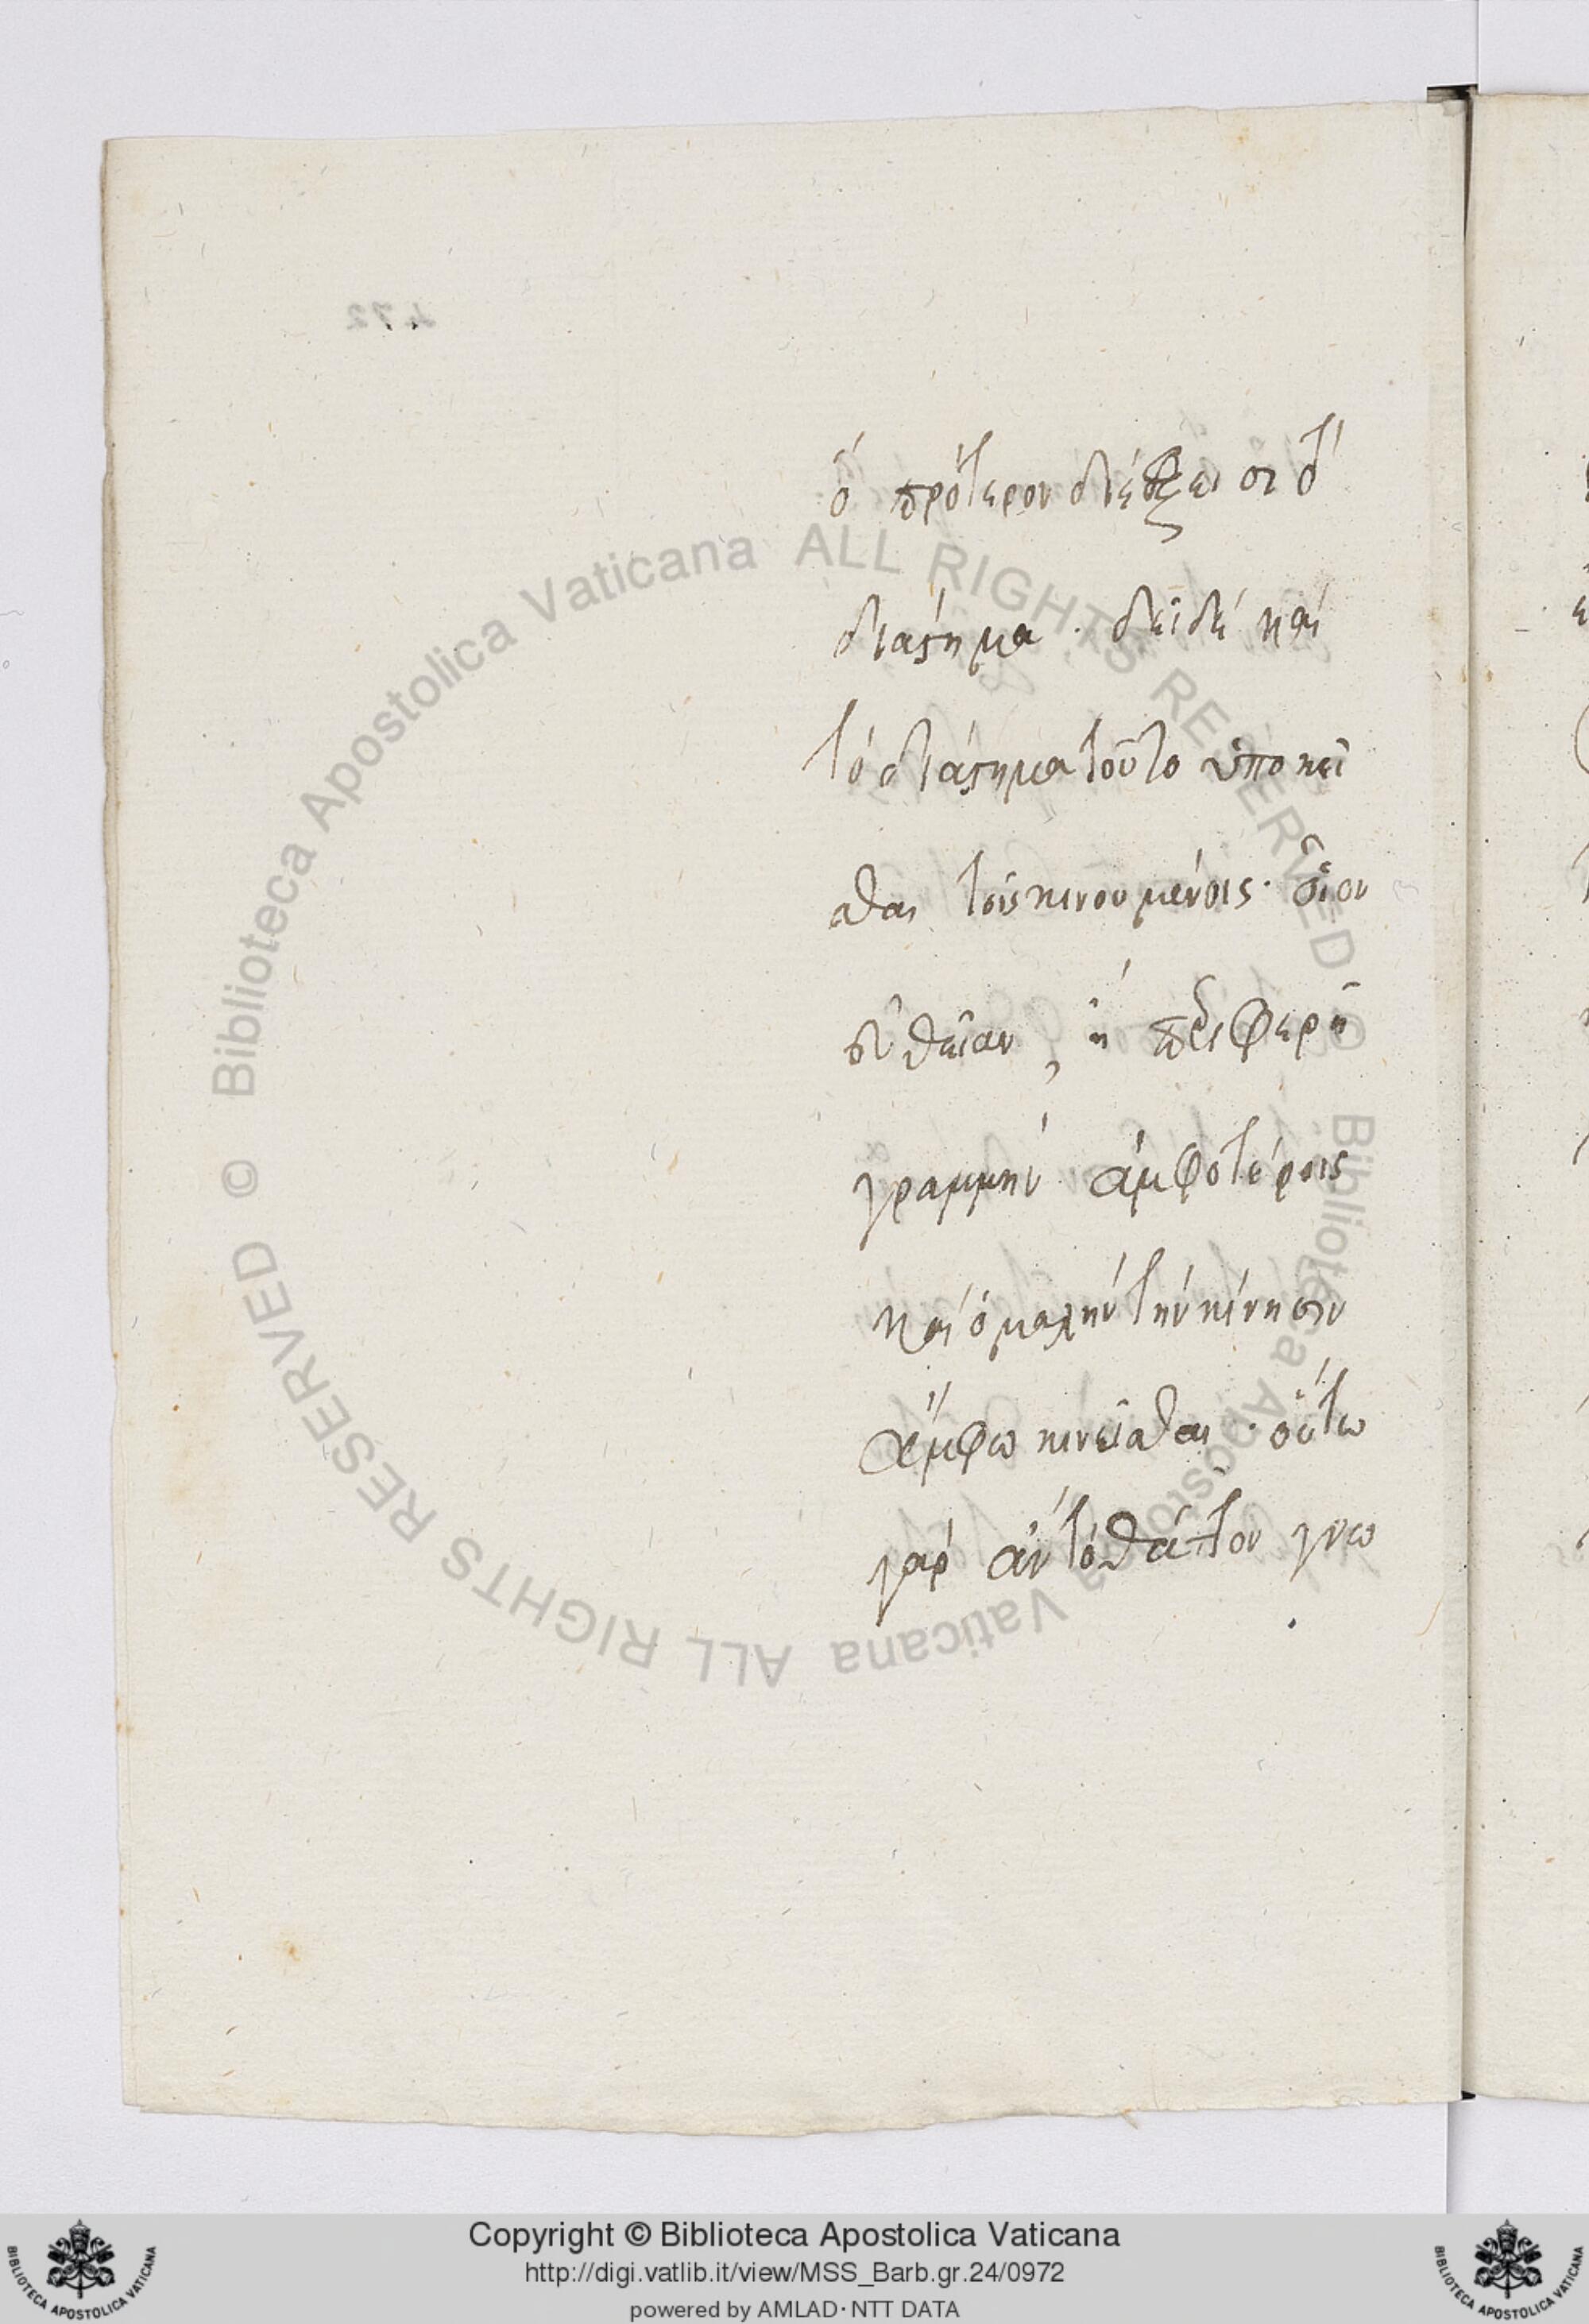 ὁ πρότερον διέξεισι τὸ
διάστημα· δεῖ δὲ καὶ
τὸ διάστημα τοῦτο ὑποκεῖ
σθαι τοῖς κινουμένοις· οἷον
εὐθεῖαν, ἢ περιφερῆ
γραμμὴν ἀμφοτέροις
καὶ ὁμαλὴν τὴν κίνησιν
ἄμφω κινεῖσθαι· οὕτω
γὰρ ἂν τὸ θᾶττον γνω
Copyright © Biblioteca Apostolica Vaticana
http://digi.vatlib.it/view/MSS_Barb.gr.24/0972
powered by AMLAD·NTT DATA
© Biblioteca Apostolica Vaticana ALL RIGHTS RESERVED
© Biblioteca Apostolica Vaticana ALL RIGHTS RESERVED
BIBLIOTECA APOSTOLICA VATICANA
BIBLIOTECA APOSTOLICA VATICANA